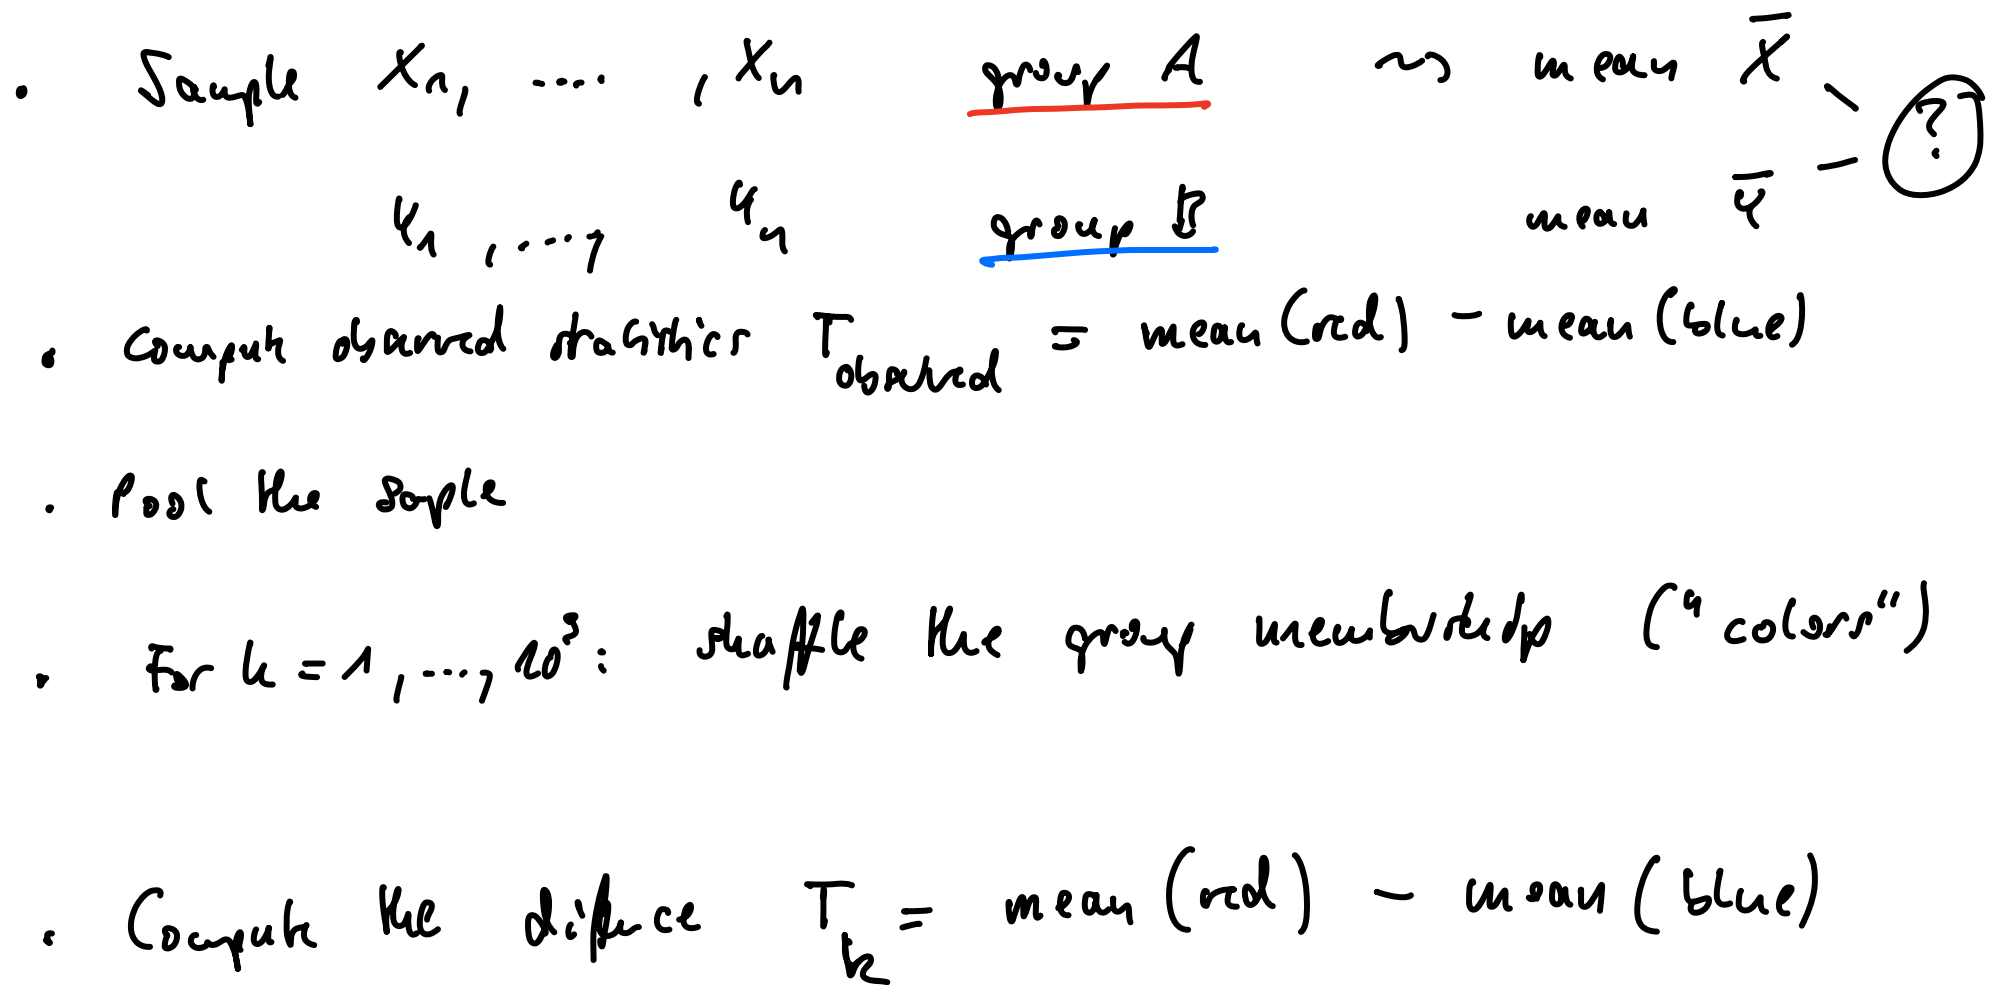 • Sample X₁, .... , Xₙ group A ~> mean X̅
?
Y₁ , ...., Yₙ group B mean Y̅
• Compute observed statistics T_observed = mean (red) - mean (blue)
• Pool the sample
• For k = 1, ..., 10³ : shuffle the group membership ("colors")
• Compute the difference T_k = mean (red) - mean (blue)